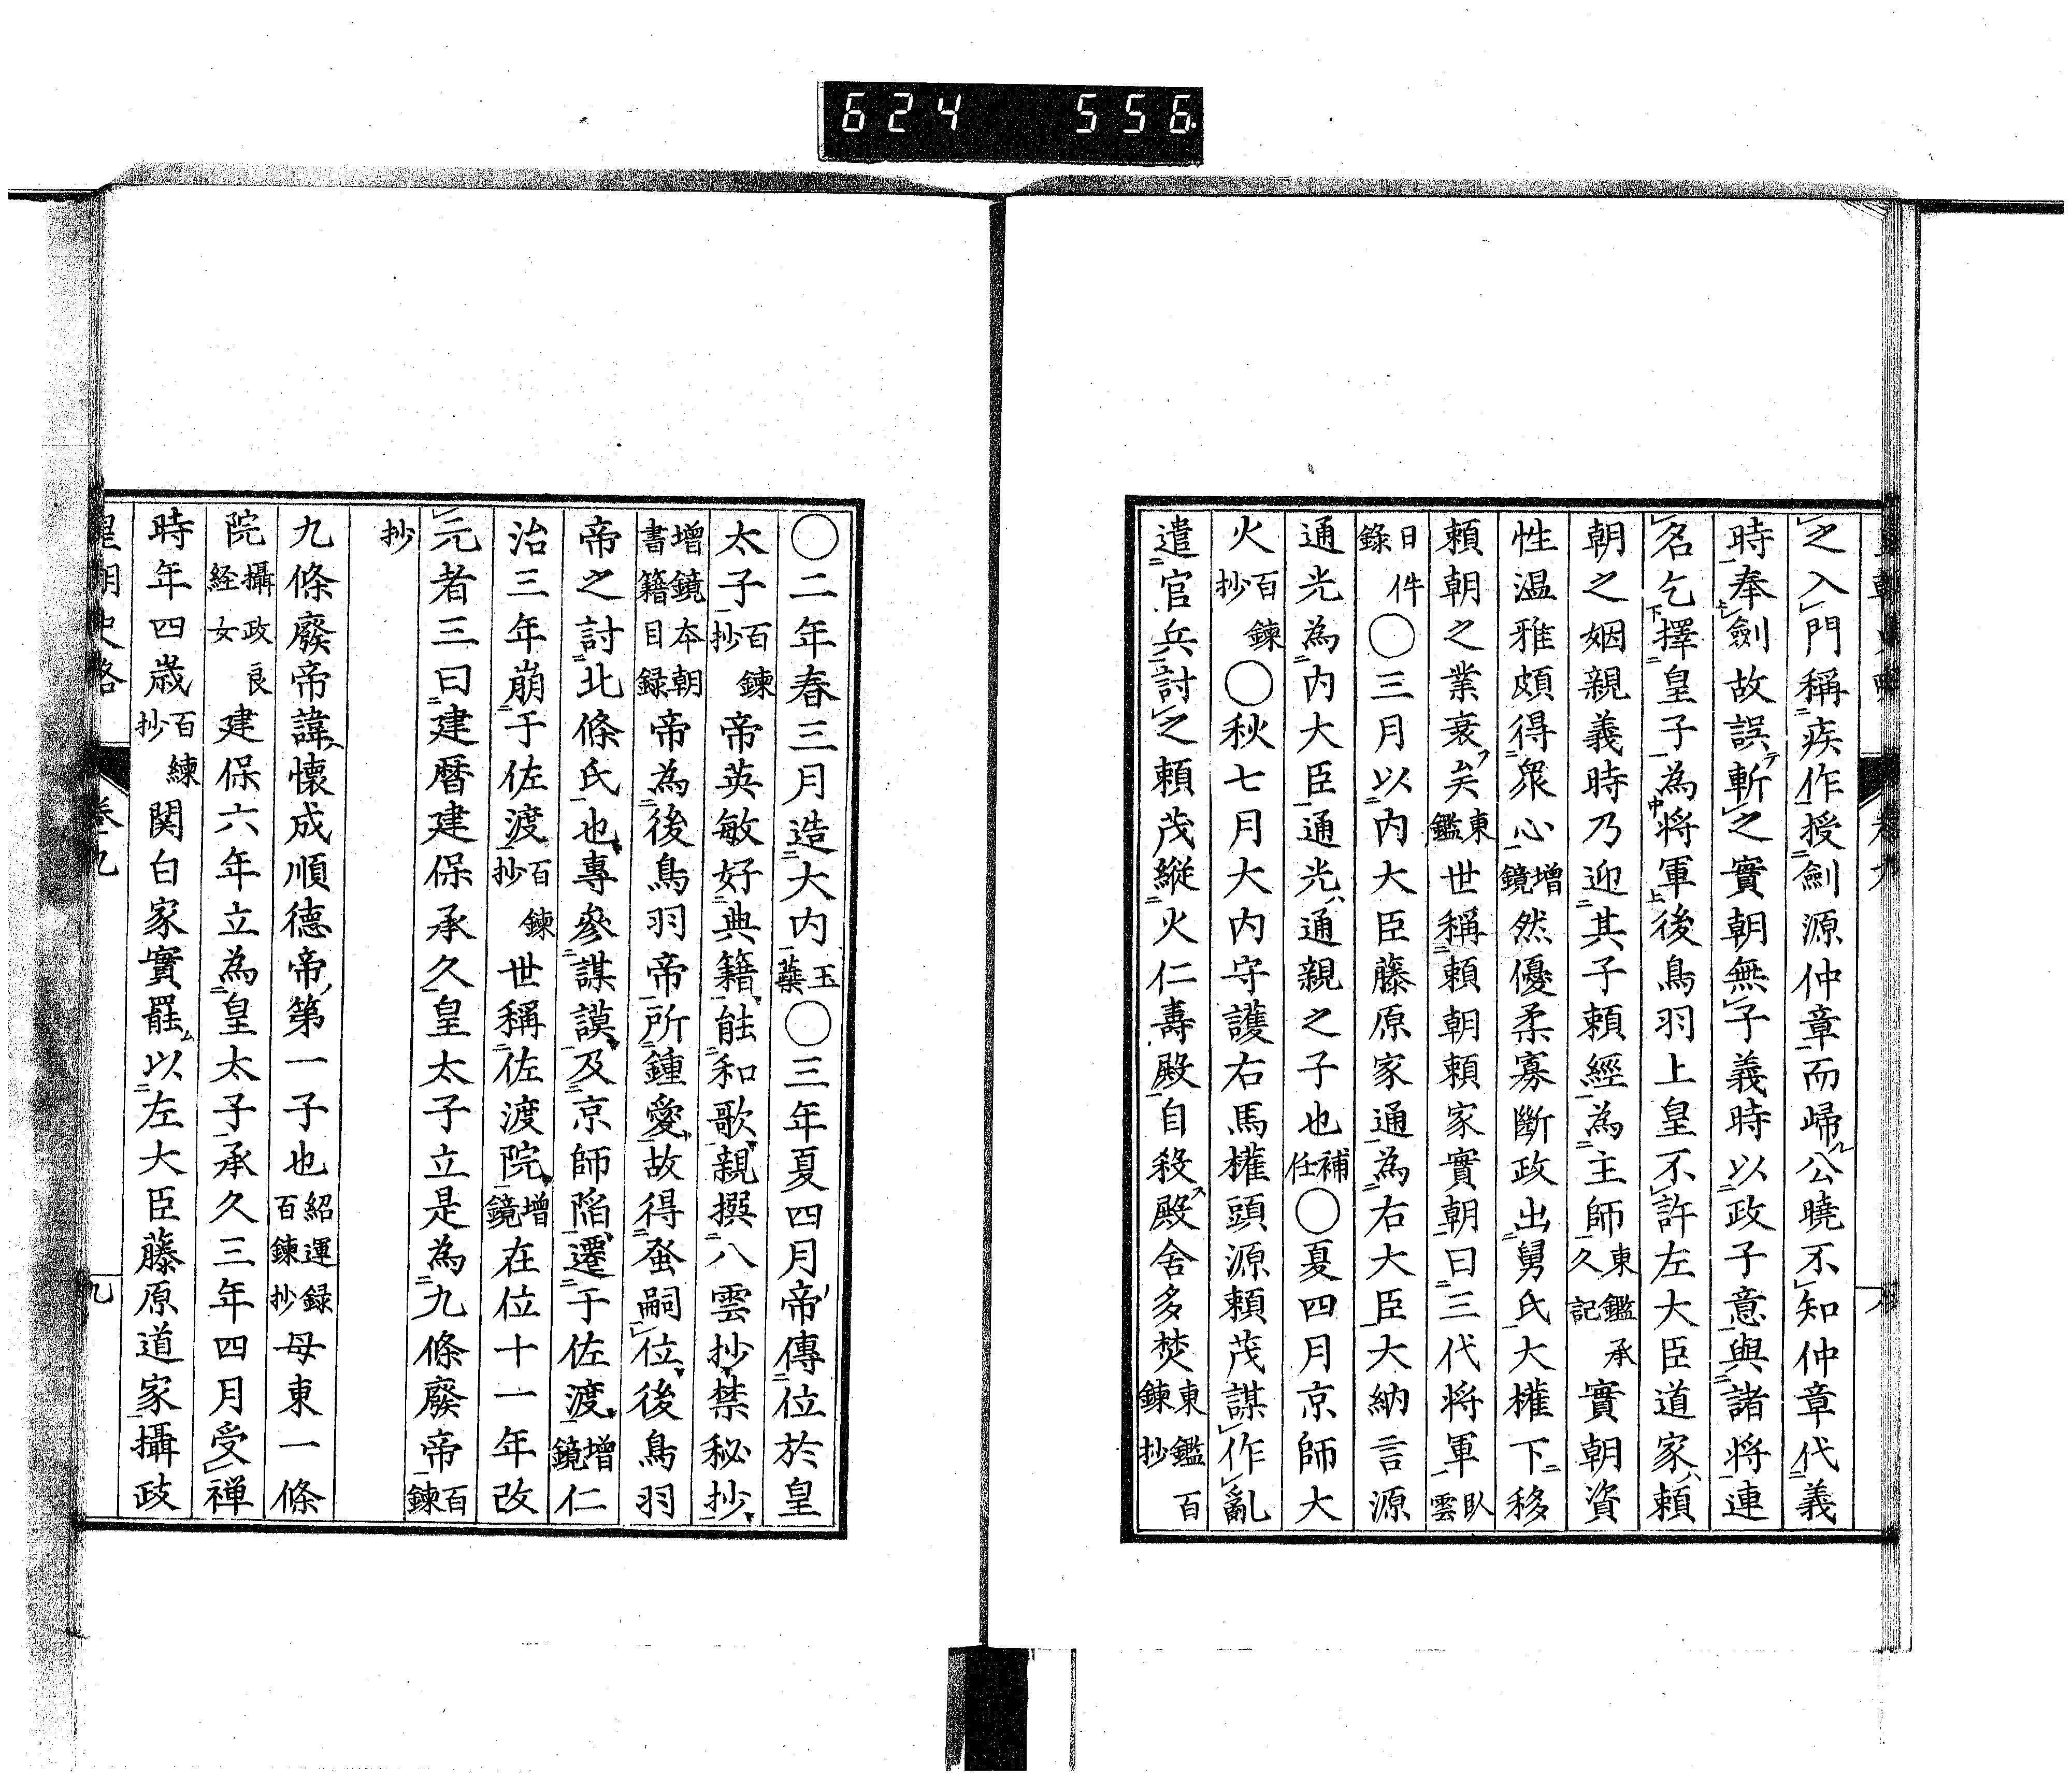 624 556
之入門稱疾作授劍源仲章而歸公曉不知仲章代義
時奉劍故誤斬之實朝無子義時以政子意與諸将連
名乞擇皇子為将軍後鳥羽上皇不許左大臣道家頼
朝之姻親義時乃迎其子頼經為主師東鑑承久記實朝資
性温雅頗得衆心增鏡然優柔寡斷政出舅氏大權下移
頼朝之業衰矣東鑑世稱頼朝頼家實朝曰三代将軍臥雲
日件錄〇三月以内大臣藤原家通為右大臣大納言源
通光為内大臣通光通親之子也補任〇夏四月京師大
火百鍊抄〇秋七月大内守護右馬權頭源頼茂謀作亂
遣官兵討之頼茂縱火仁壽殿自殺殿舍多焚東鑑百鍊抄
〇二年春三月造大内玉蘂〇三年夏四月帝傳位於皇
太子百鍊抄帝英敏好典籍能和歌親撰八雲抄禁秘抄
增鏡本朝書籍目録帝為後鳥羽帝所鍾愛故得蚤嗣位後鳥羽
帝之討北條氏也專參謀謨及京師陷遷于佐渡增鏡仁
治三年崩于佐渡百鍊抄世稱佐渡院增鏡在位十一年改
元者三曰建暦建保承久皇太子立是為九條廢帝百鍊
抄
九條廢帝諱懷成順德帝第一子也紹運録百鍊抄母東一條
院攝政良経女建保六年立為皇太子承久三年四月受禅
時年四歳百練抄関白家實罷以左大臣藤原道家攝政
皇朝史略 卷九 九